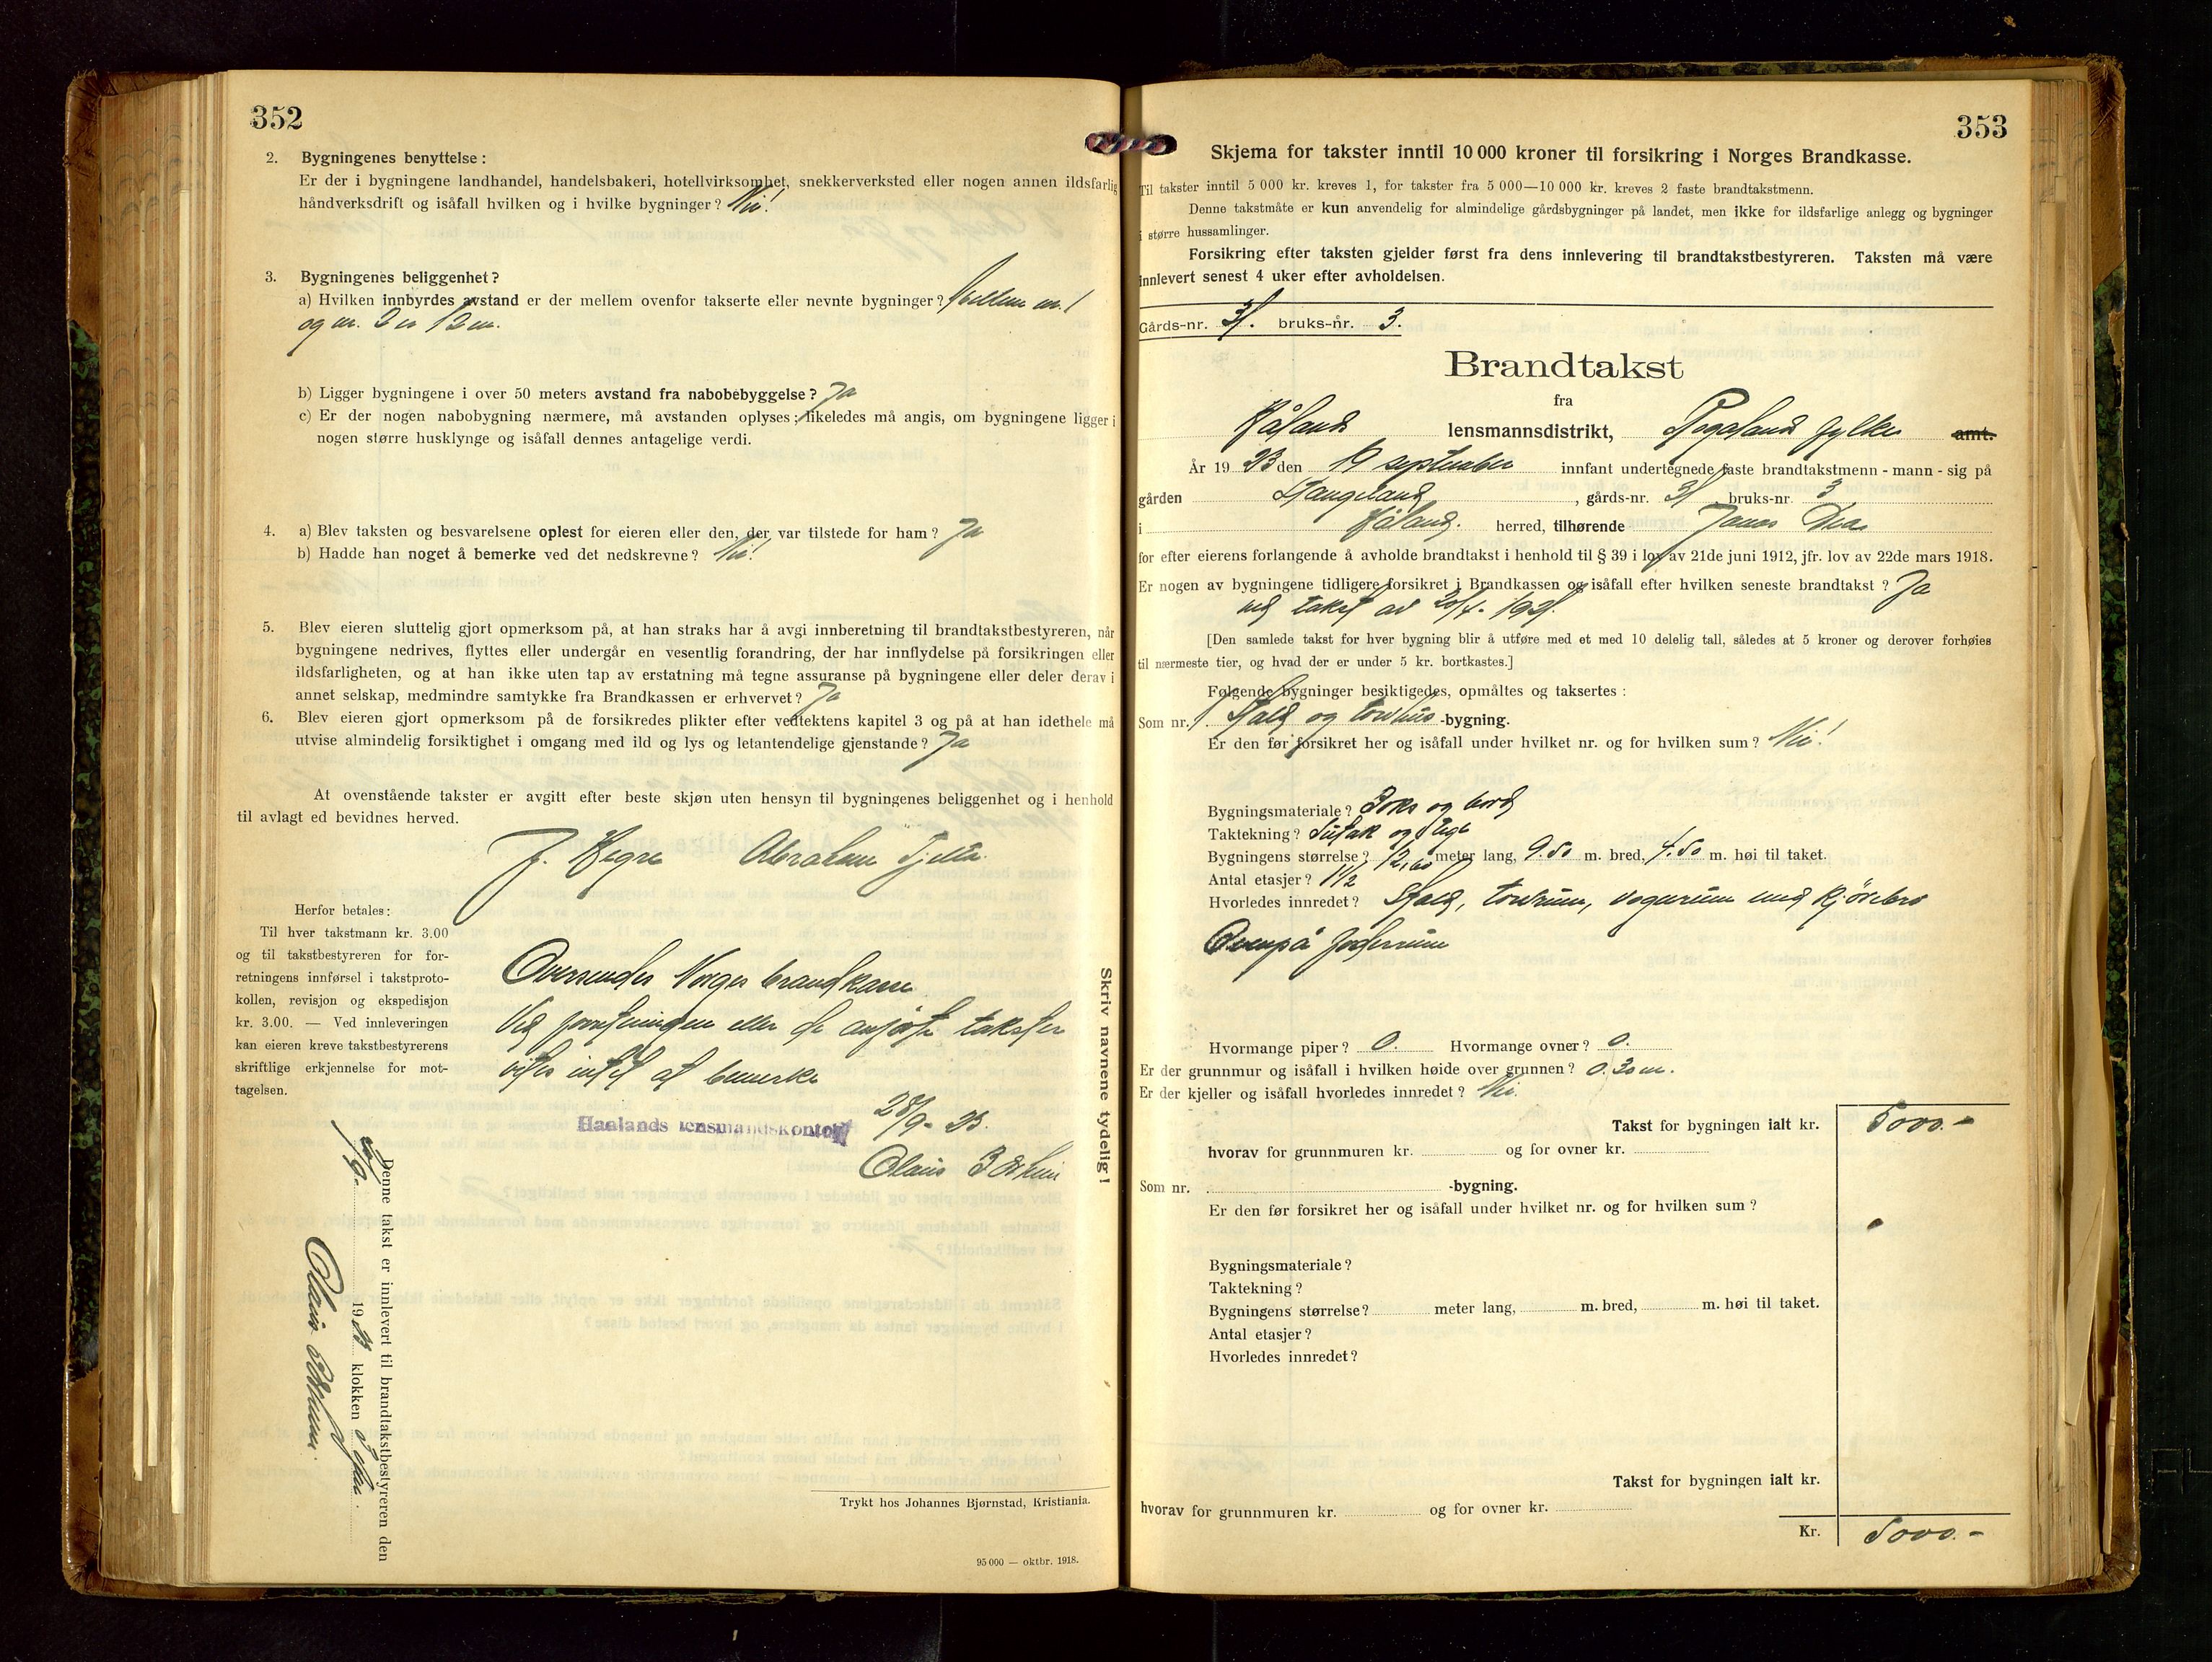 352
2. Bygningenes benyttelse:
Er der i bygningene landhandel, handelsbakeri, hotellvirksomhet, snekkerverksted eller nogen annen ildsfarlig
håndverksdrift og isåfall hvilken og i hvilke bygninger? Nei!
3. Bygningenes beliggenhet?
a) Hvilken innbyrdes avstand er der mellem ovenfor takserte eller nevnte bygninger? Mellem nr. 1
og nr. 2 er 12 m.
b) Ligger bygningene i over 50 meters avstand fra nabobebyggelse? Ja
c) Er der nogen nabobygning nærmere, må avstanden oplyses; likeledes må angis, om bygningene ligger i
nogen større husklynge og isåfall dennes antagelige verdi.
4. a) Blev taksten og besvarelsene oplest for eieren eller den, der var tilstede for ham? Ja
b) Hadde han noget å bemerke ved det nedskrevne? Nei!
5. Blev eieren sluttelig gjort opmerksom på, at han straks har å avgi innberetning til brandtakstbestyreren, når
bygningene nedrives, flyttes eller undergår en vesentlig forandring, der har innflydelse på forsikringen eller
ildsfarligheten, og at han ikke uten tap av erstatning må tegne assuranse på bygningene eller deler derav i
annet selskap, medmindre samtykke fra Brandkassen er erhvervet? Ja
6. Blev eieren gjort opmerksom på de forsikredes plikter efter vedtektens kapitel 3 og på at han idethele må
utvise almindelig forsiktighet i omgang med ild og lys og letantendelige gjenstande? Ja
At ovenstående takster er avgitt efter beste skjøn uten hensyn til bygningenes beliggenhet og i henhold
til avlagt ed bevidnes herved.
J. Hegre Abraham Tjelta
Herfor betales:
Til hver takstmann kr. 3.00
og til takstbestyreren for for-
retningens innførsel i takstproto-
kollen, revisjon og ekspedisjon
kr. 3.00. — Ved innleveringen
kan eieren kreve takstbestyrerens
skriftlige erkjennelse for mot-
tagelsen.
Oversendes Norges brandkasse
Ved forretningen eller de anførte takster
vites intet at bemerke
28/9- 23.
Haalands lensmandskontor
Olaus
Skriv navnene tydelig!
Denne takst er innlevert til brandtakstbestyreren den
19 23 klokken
Olaus
Trykt hos Johannes Bjørnstad, Kristiania.
95 000 — oktbr. 1918.
353
Skjema for takster inntil 10 000 kroner til forsikring i Norges Brandkasse.
Til takster inntil 5 000 kr. kreves 1, for takster fra 5 000—10 000 kr. kreves 2 faste brandtakstmenn.
Denne takstmåte er kun anvendelig for almindelige gårdsbygninger på landet, men ikke for ildsfarlige anlegg og bygninger
i større hussamlinger.
Forsikring efter taksten gjelder først fra dens innlevering til brandtakstbestyreren. Taksten må være
innlevert senest 4 uker efter avholdelsen.
Gårds-nr. 31. bruks-nr. 3.
Brandtakst
fra
Håland lensmannsdistrikt, Rogaland fylke amt.
År 19 23 den 19 september innfant undertegnede faste brandtakstmenn - mann - sig på
gården Stangeland, gårds-nr. 31 bruks-nr. 3
i Håland. herred, tilhørende Jonas
for efter eierens forlangende å avholde brandtakst i henhold til § 39 i lov av 21de juni 1912, jfr. lov av 22de mars 1918.
Er nogen av bygningene tidligere forsikret i Brandkassen og isåfall efter hvilken seneste brandtakst? Ja
ved takst av 20/4. 1921.
[Den samlede takst for hver bygning blir å utføre med et med 10 delelig tall, således at 5 kroner og derover forhøies
til nærmeste tier, og hvad der er under 5 kr. bortkastes.]
Følgende bygninger besiktigedes, opmåltes og taksertes:
Som nr. 1. Stald og torvhus -bygning.
Er den før forsikret her og isåfall under hvilket nr. og for hvilken sum? Nei!
Bygningsmateriale? Stoks og bord
Taktekning? Sutak og tegl
Bygningens størrelse? 12,60 meter lang, 9.50 m. bred, 4.50 m. høi til taket.
Antal etasjer? 1 1/2
Hvorledes innredet? Stald, torvrum, vognrum med kjørebro
Ovenpå foderrum
Hvormange piper? 0. Hvormange ovner? 0.
Er der grunnmur og isåfall i hvilken høide over grunnen? 0.30 m.
Er der kjeller og isåfall hvorledes innredet? Nei.
Takst for bygningen ialt kr. 5000.-
hvorav for grunnmuren kr. og for ovner kr.
Som nr. -bygning.
Er den før forsikret her og isåfall under hvilket nr. og for hvilken sum?
Bygningsmateriale?
Taktekning?
Bygningens størrelse? meter lang, m. bred, m. høi til taket.
Antal etasjer?
Hvorledes innredet?
Takst for bygningen ialt kr.
hvorav for grunnmuren kr. og for ovner kr.
Kr. 5000.-